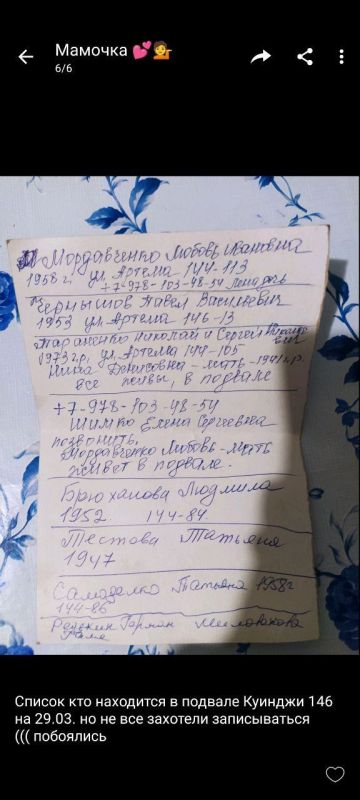 Мамочка 💕💁
6/6
Мордавченко Любовь Ивановна
1958 г. ул. Артема 144-113
+7-978-103-48-54 Лена дочь
Чернышов Павел Васильевич
1953 ул. Артема 146-13
Тараненко Николай и Сергей
1973 г.р. ул. Артема 144-105
Нина Денисовна - мать - 1941 г.р.
все живы, в подвале
+7-978-103-48-54
Шимко Елена Сергеевна
позвонить,
Мордавченко Любовь - мать
живёт в подвале.
Брюханова Людмила
1952 144-84
Тестова Татьяна
1947
Самоделко Татьяна 1958г
144-86
Герман
Список кто находится в подвале Куинджи 146
на 29.03. но не все захотели записываться
((( побоялись